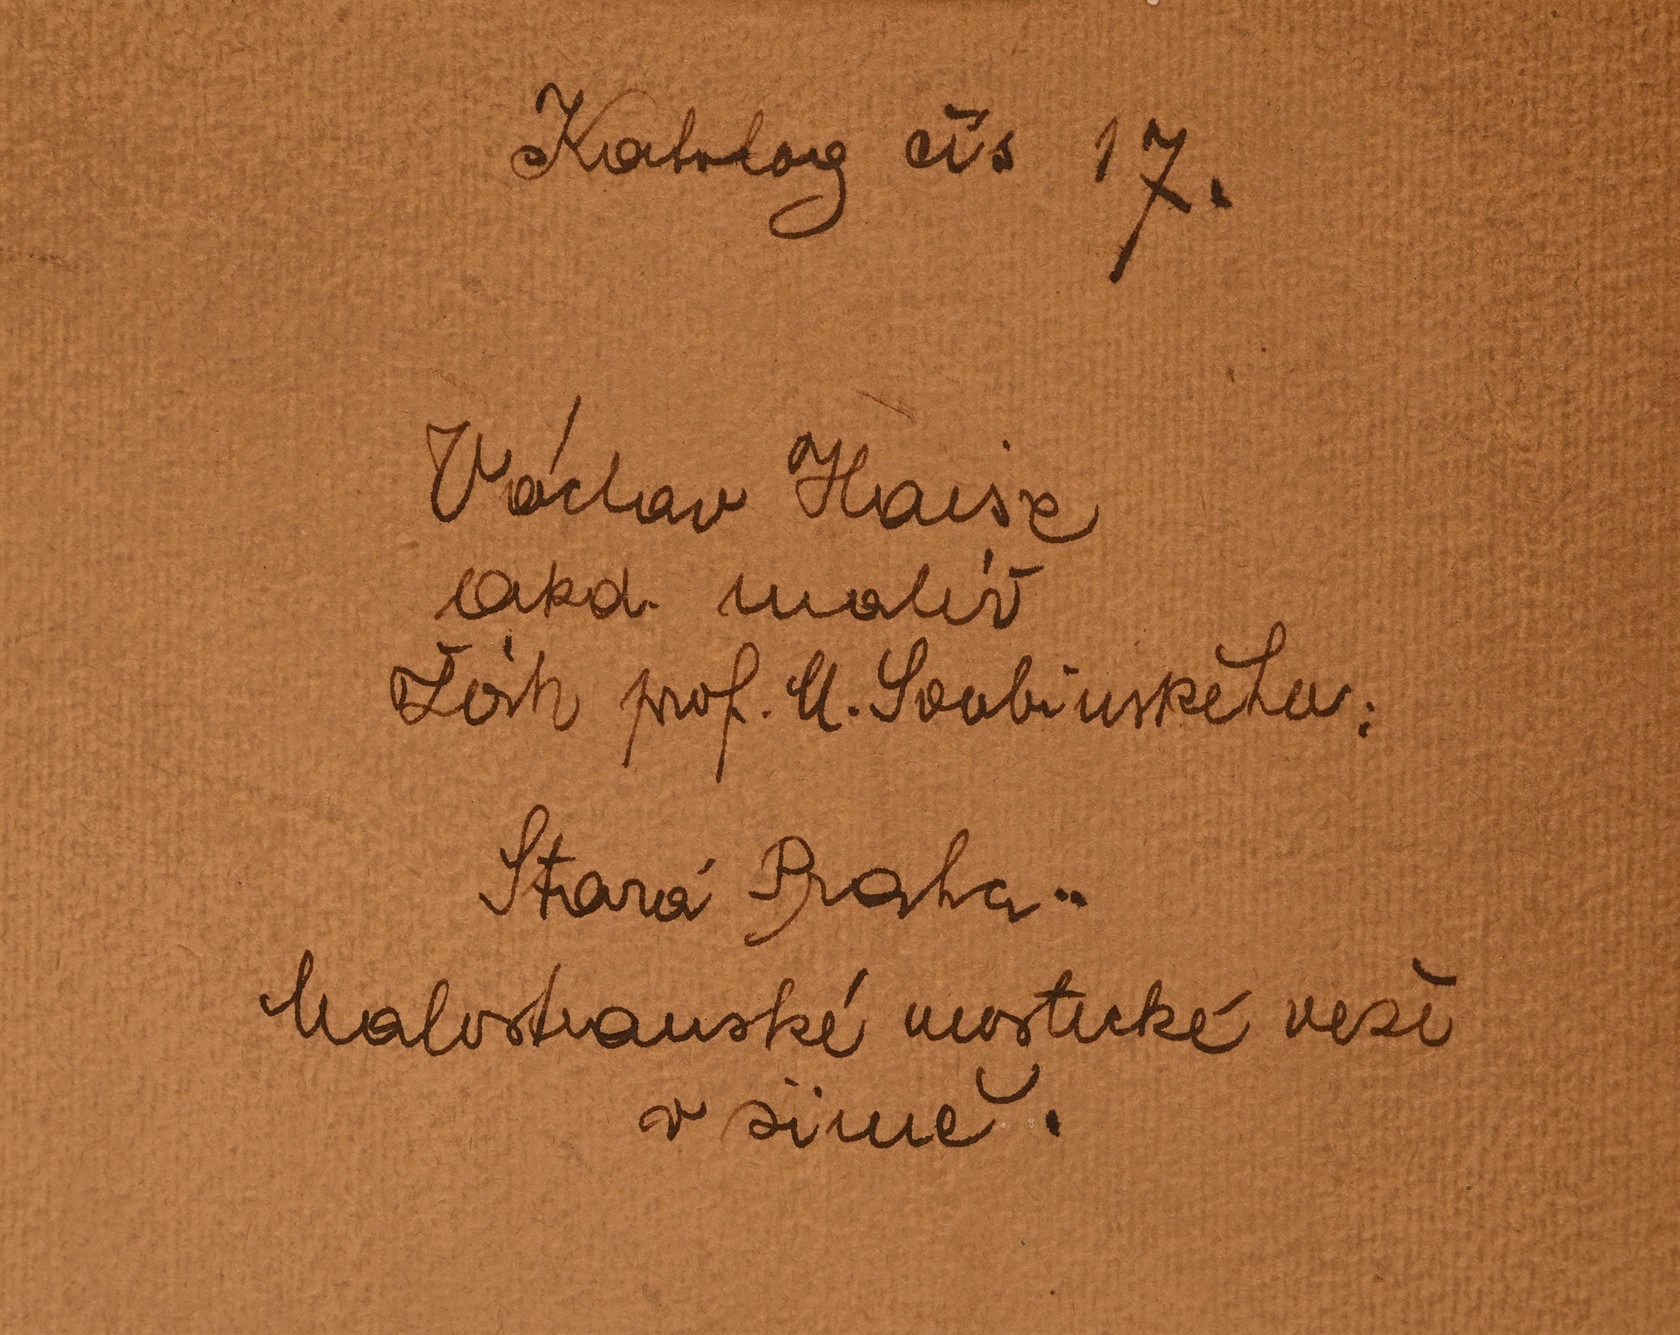 Katalog čís 17.
Václav Haise
akd. malíř
Žák prof. M. Svabinského:
Stará Praha..
Malostranské mostecké veže
v zimě.